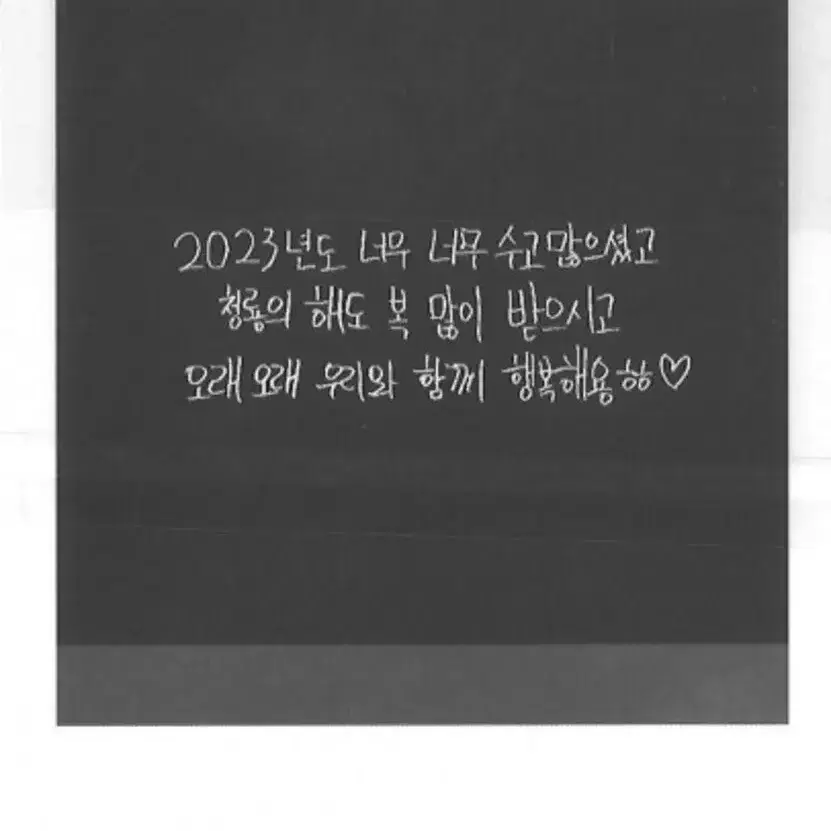 2023년도 너무 너무 수고많으셨고
청룡의 해도 복 많이 받으시고
오래오래 우리와 함께 행복해용ㅎㅎ♡